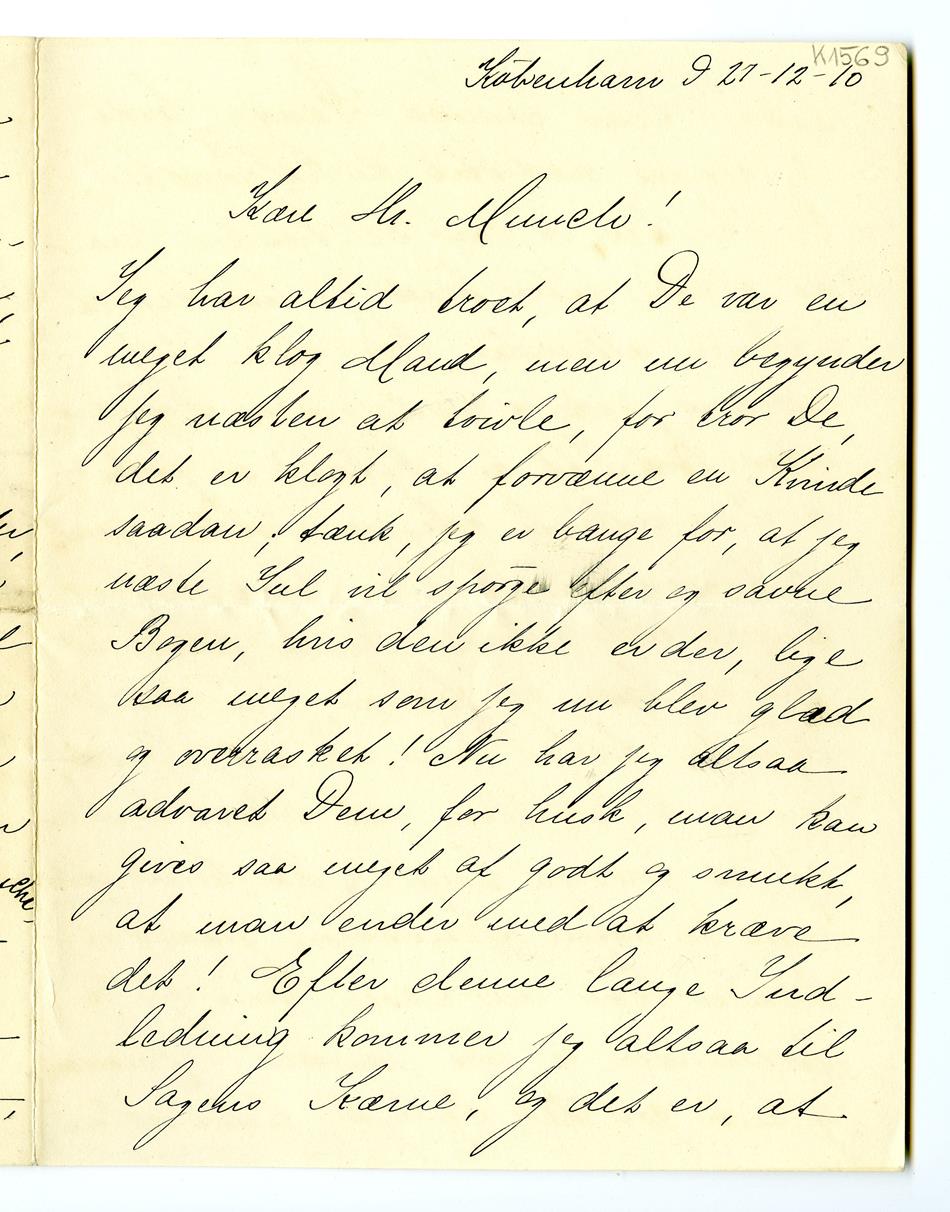 K1569
København D 27-12-10
Kære Hr. Munch!
Jeg har altid troet, at De var en
meget klog Mand, men nu begynder
jeg næsten at tvivle, for tror De,
det er klogt, at forvænne en Kvinde
saadan; tænk, jeg er bange for, at jeg
næste Jul vil spørge efter og savne
Bogen, hvis den ikke er der, lige
saa meget som jeg nu blev glad
og overrasket! Nu har jeg altsaa
advaret Dem, for husk, man kan
gives saa meget af godt og smukt,
at man ender med at kræve
det! Efter denne lange Ind-
ledning kommer jeg altsaa til
Sagens Kærne, og det er, at